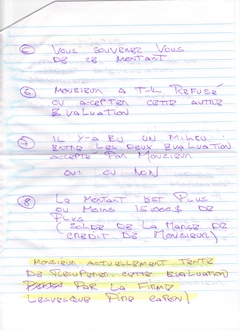 ⑤ Vous souvenez vous
de ce montant
⑥ Monsieur a t-il refusé
ou accepter cette autre
évaluation
⑦ Il y-a eu un milieu
entre les deux évaluation
accepté par Monsieur
oui ou non
⑧ Le montant est plus
ou moins 15000$ de
plus
(solde de la marge de
crédit de Monsieur)
Monsieur actuellement tente
de récupérer cette évaluation
par la firme
Levesque